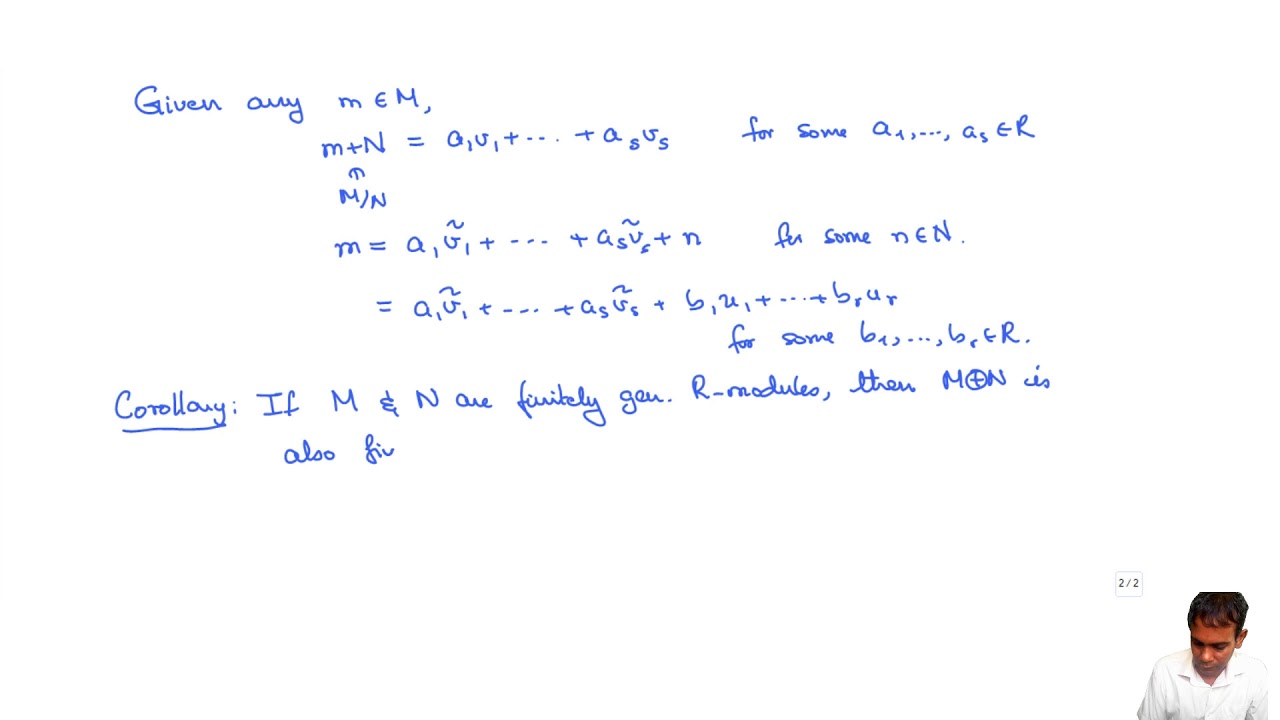 Given any m ∈ M,
m+N = a₁v₁ + ... + aₛvₛ for some a₁, ..., aₛ ∈ R
∩
M/N
m = a₁ṽ₁ + ... + aₛṽₛ + n for some n ∈ N.
= a₁ṽ₁ + ... + aₛṽₛ + b₁u₁ + ... + bᵣuᵣ
for some b₁, ..., bᵣ ∈ R.
Corollary: If M & N are finitely gen. R-modules, then M⊕N is
also fin
2 / 2